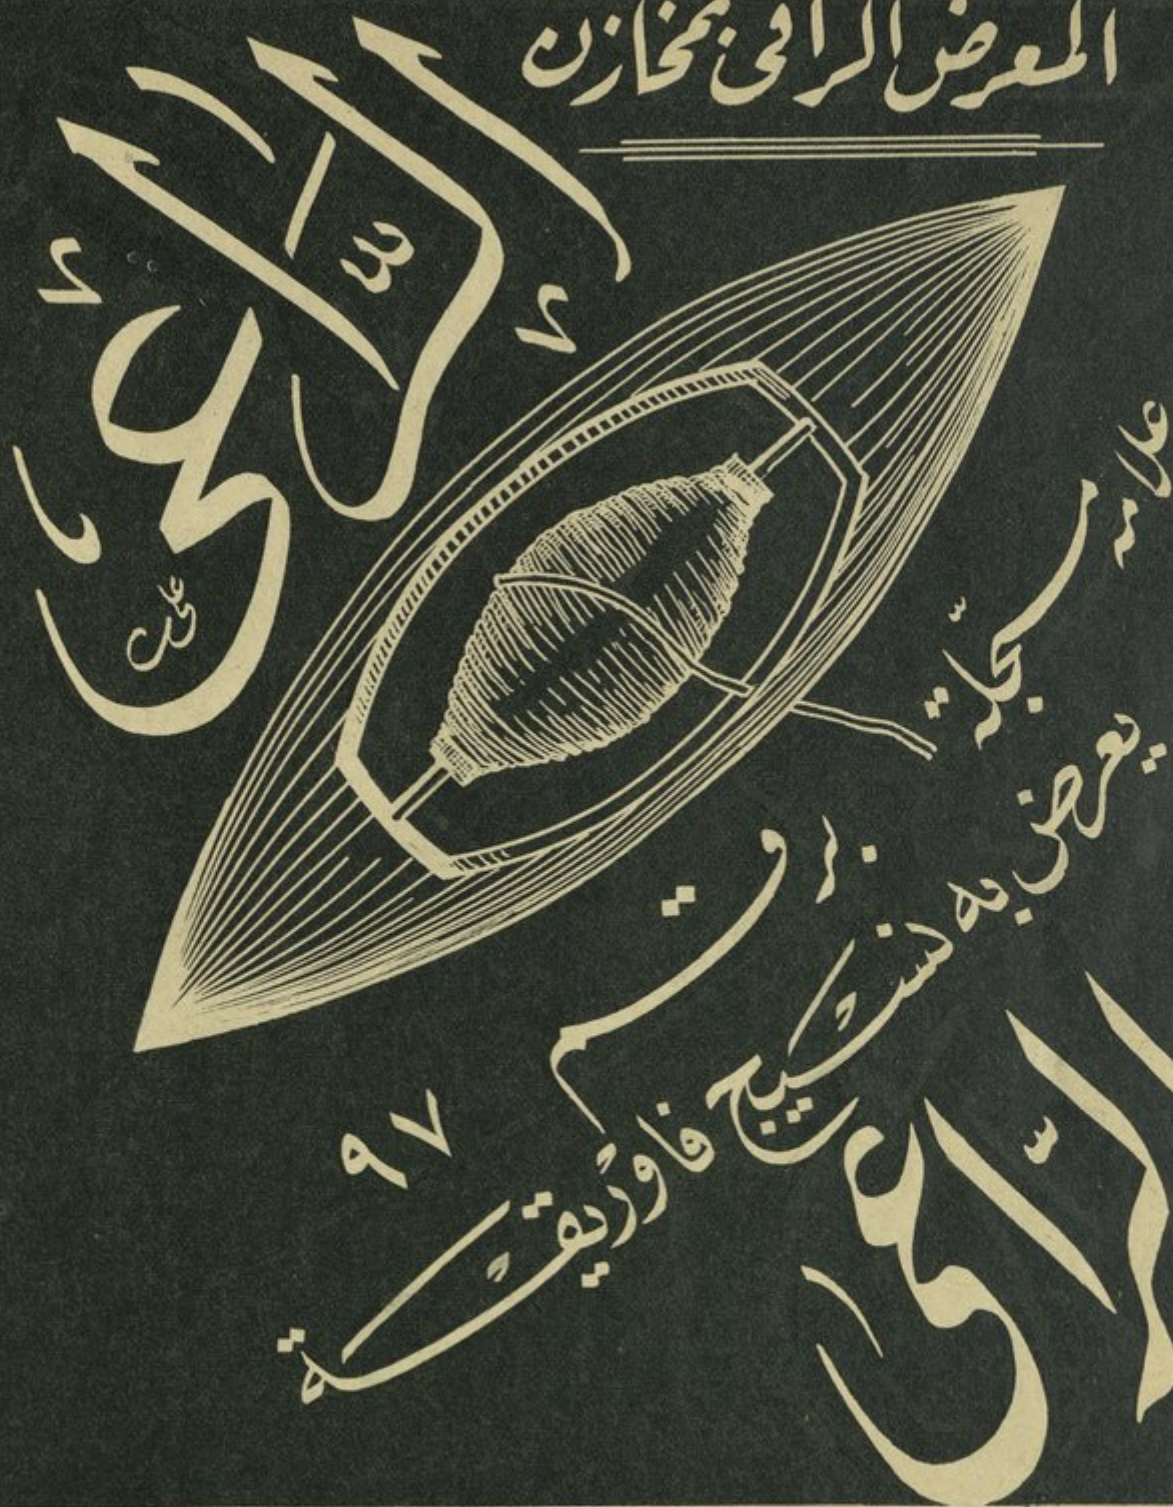 المعرض الراقى بمخازن
الرَّاعى
علامه مسجّلة
برقم ٩٧
يعرض به نسيج فاوريقة
الرّاعى